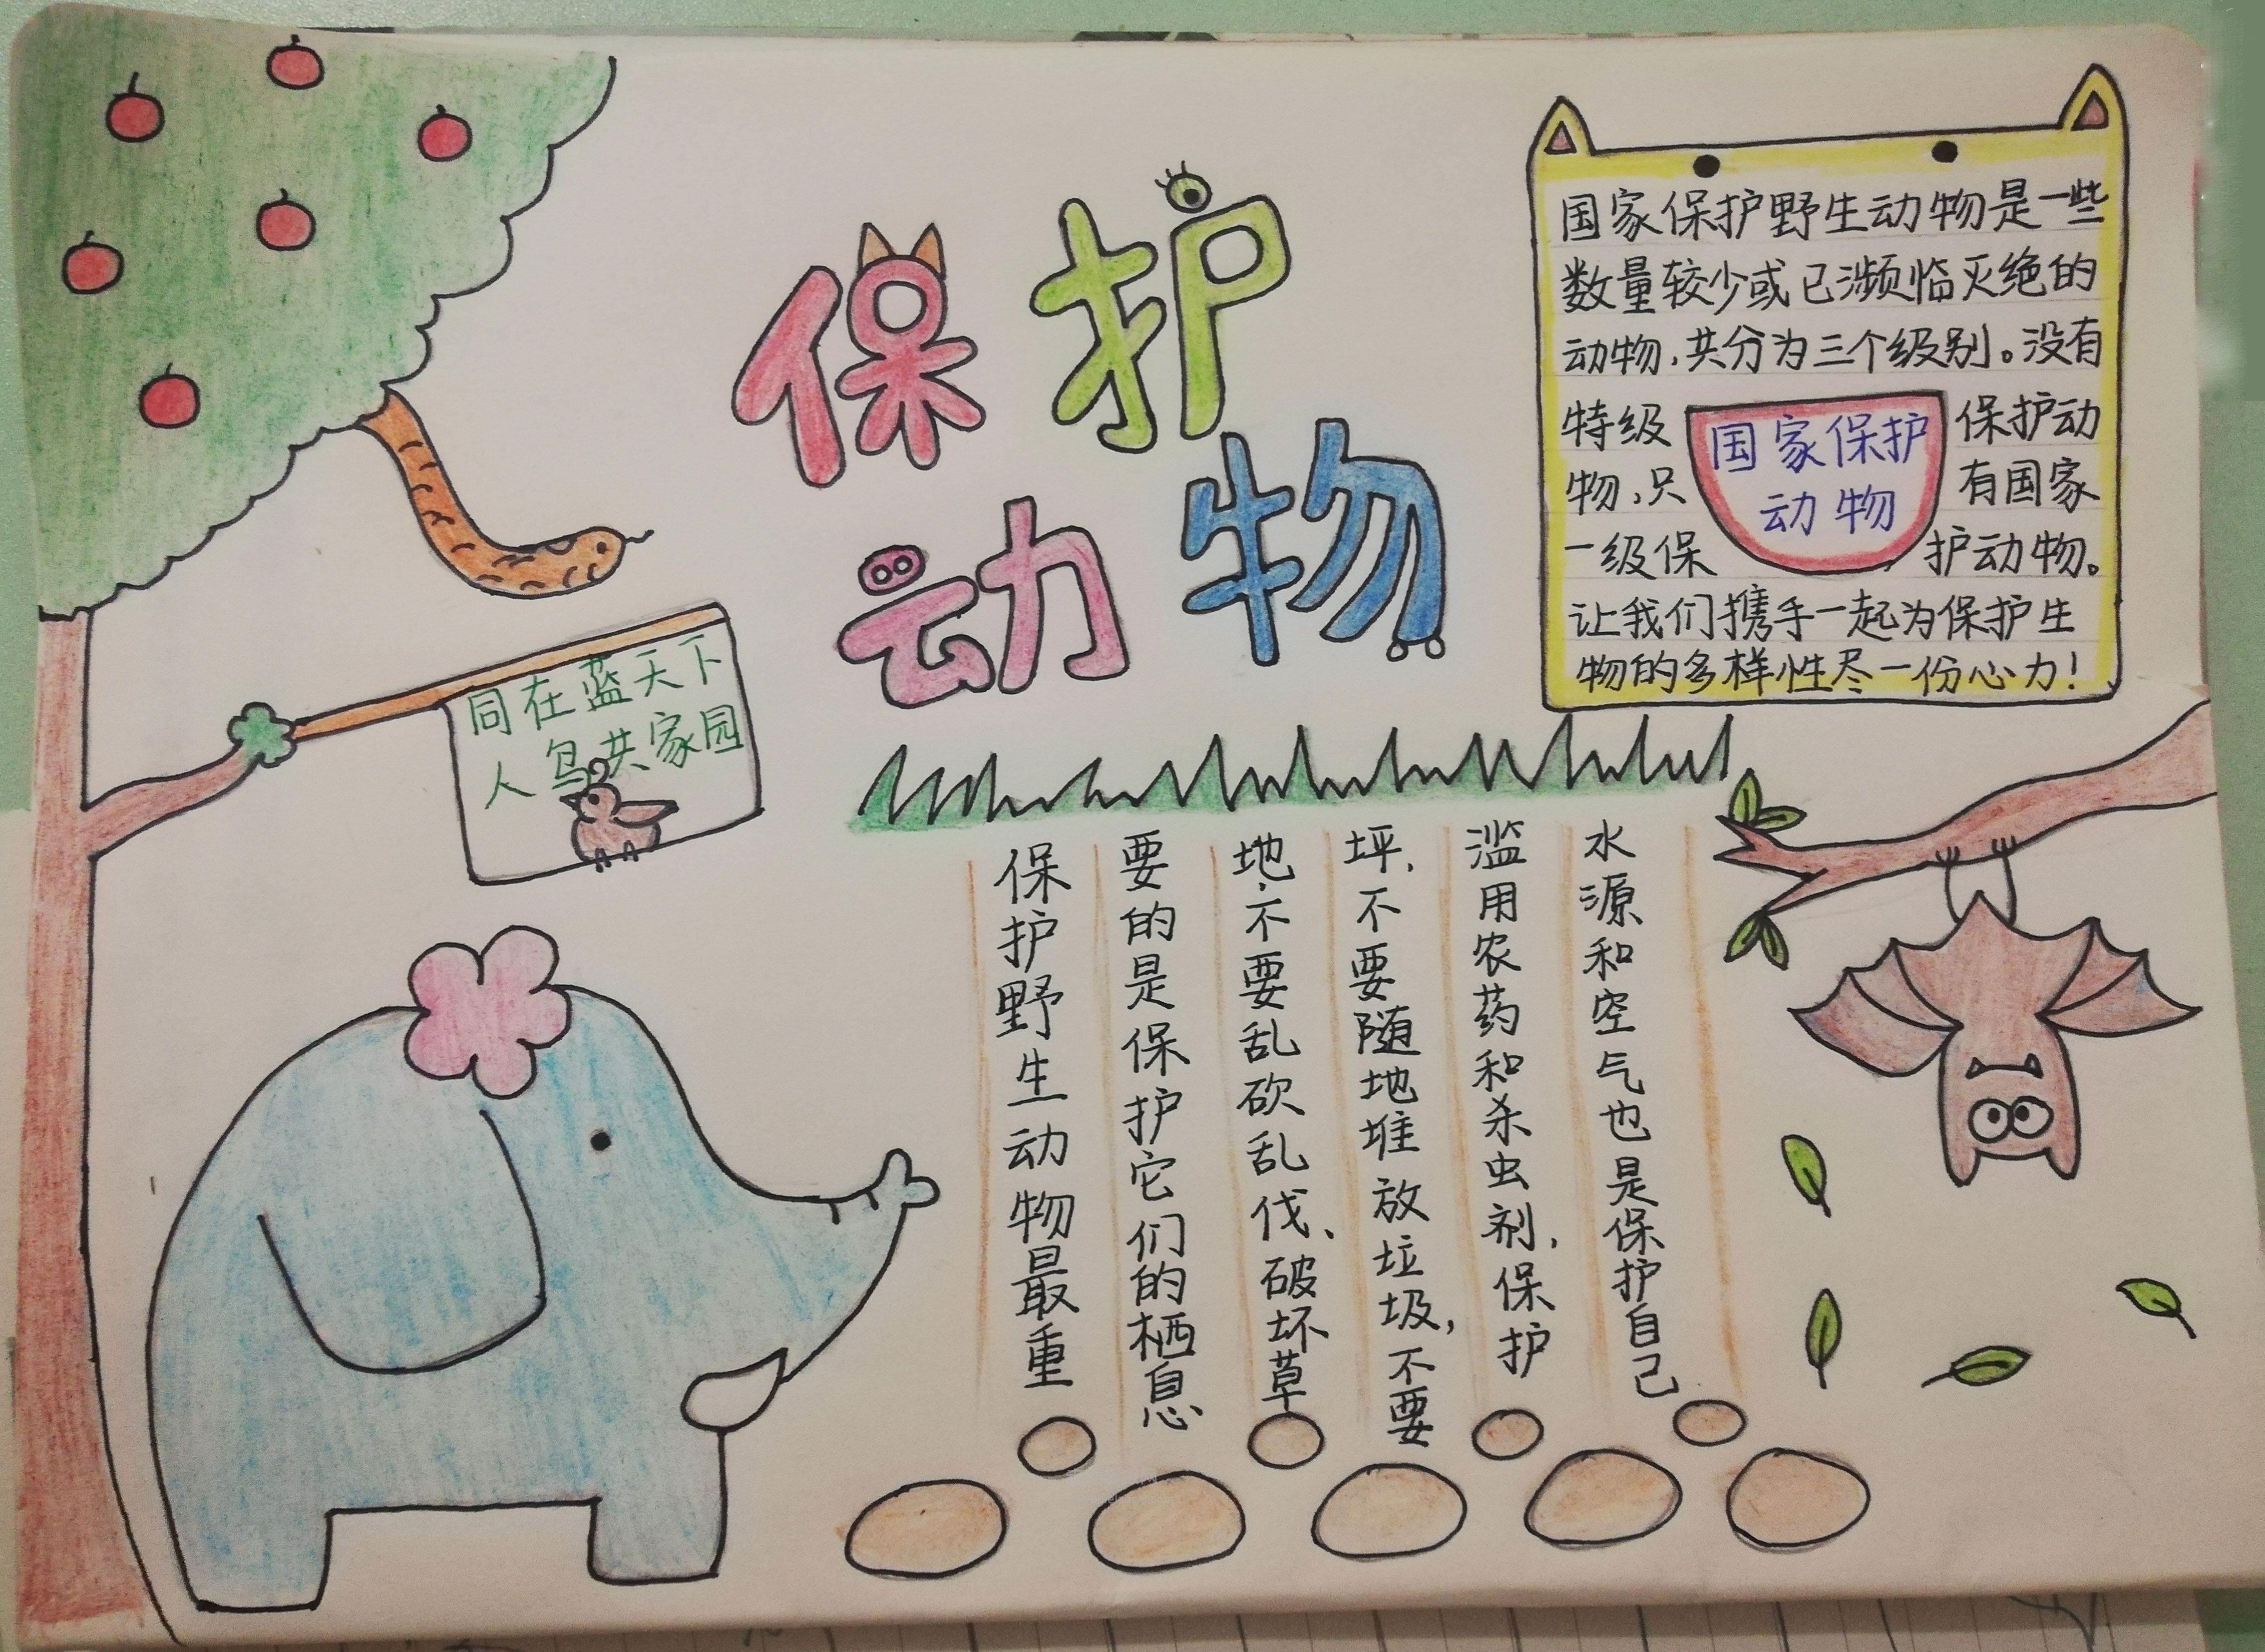 保护
动物
国家保护野生动物是一些
数量较少或已濒临灭绝的
动物,共分为三个级别。没有
特级保护动
物,只有国家
一级保护动物。
让我们携手一起为保护生
物的多样性尽一份心力!
国家保护
动物
同在蓝天下
人鸟共家园
保护野生动物最重
要的是保护它们的栖息
地,不要乱砍乱伐、破坏草
坪,不要随地堆放垃圾,不要
滥用农药和杀虫剂,保护
水源和空气也是保护自己